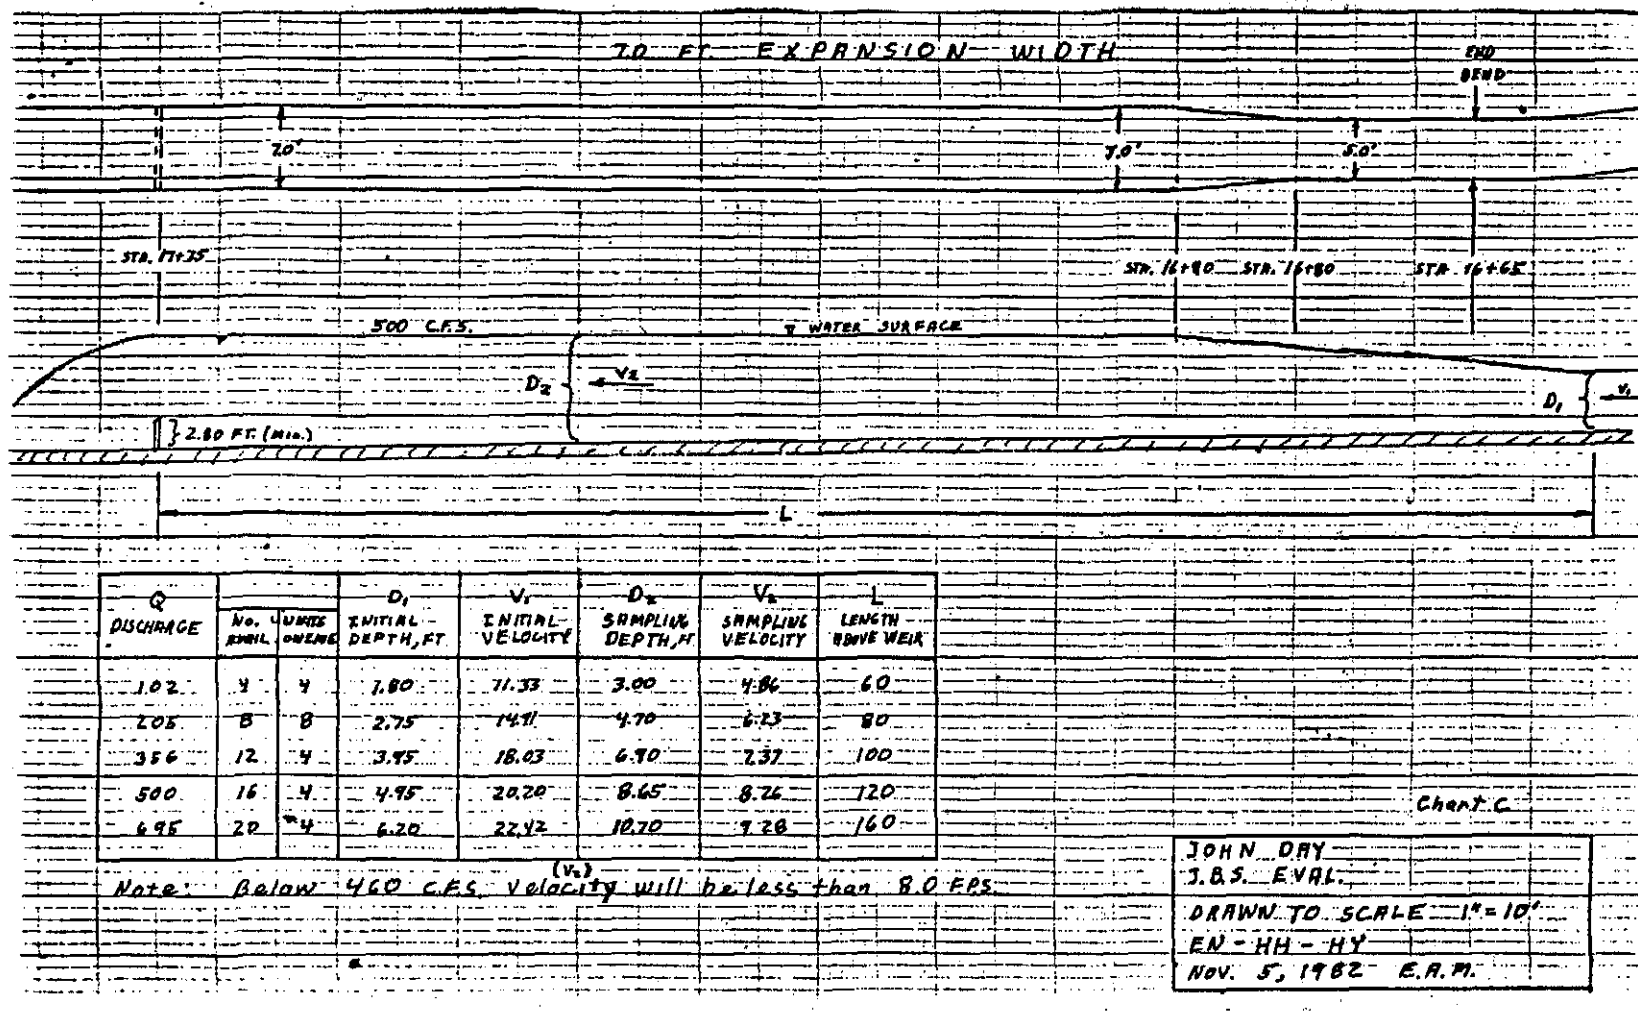 7.0 FT. EXPANSION WIDTH
END
BEND
7.0'
7.0'
5.0'
STA. 17+75
STA. 16+90 STA. 16+80 STA 16+65
500 C.F.S.
WATER SURFACE
D2
V2
D1
V1
2.80 FT. (Min.)
L
Q D1 V1 D2 V2 L
DISCHARGE NO. UNITS INITIAL INITIAL SAMPLING SAMPLING LENGTH
DEPTH, FT VELOCITY DEPTH, FT VELOCITY ABOVE WEIR
102 4 4 1.80 11.33 3.00 4.86 60
205 8 8 2.75 14.91 4.70 6.23 80
356 12 4 3.95 18.03 6.90 7.37 100
500 16 4 4.95 20.20 8.65 8.26 120
695 20 4 6.20 22.42 10.70 9.28 160
(V2)
Note: Below 460 C.F.S. Velocity will be less than 8.0 FPS.
Chart C
JOHN DAY
J.B.S. EVAL.
DRAWN TO SCALE 1" = 10'
EN - HH - HY
NOV. 5, 1982 E.A.M.